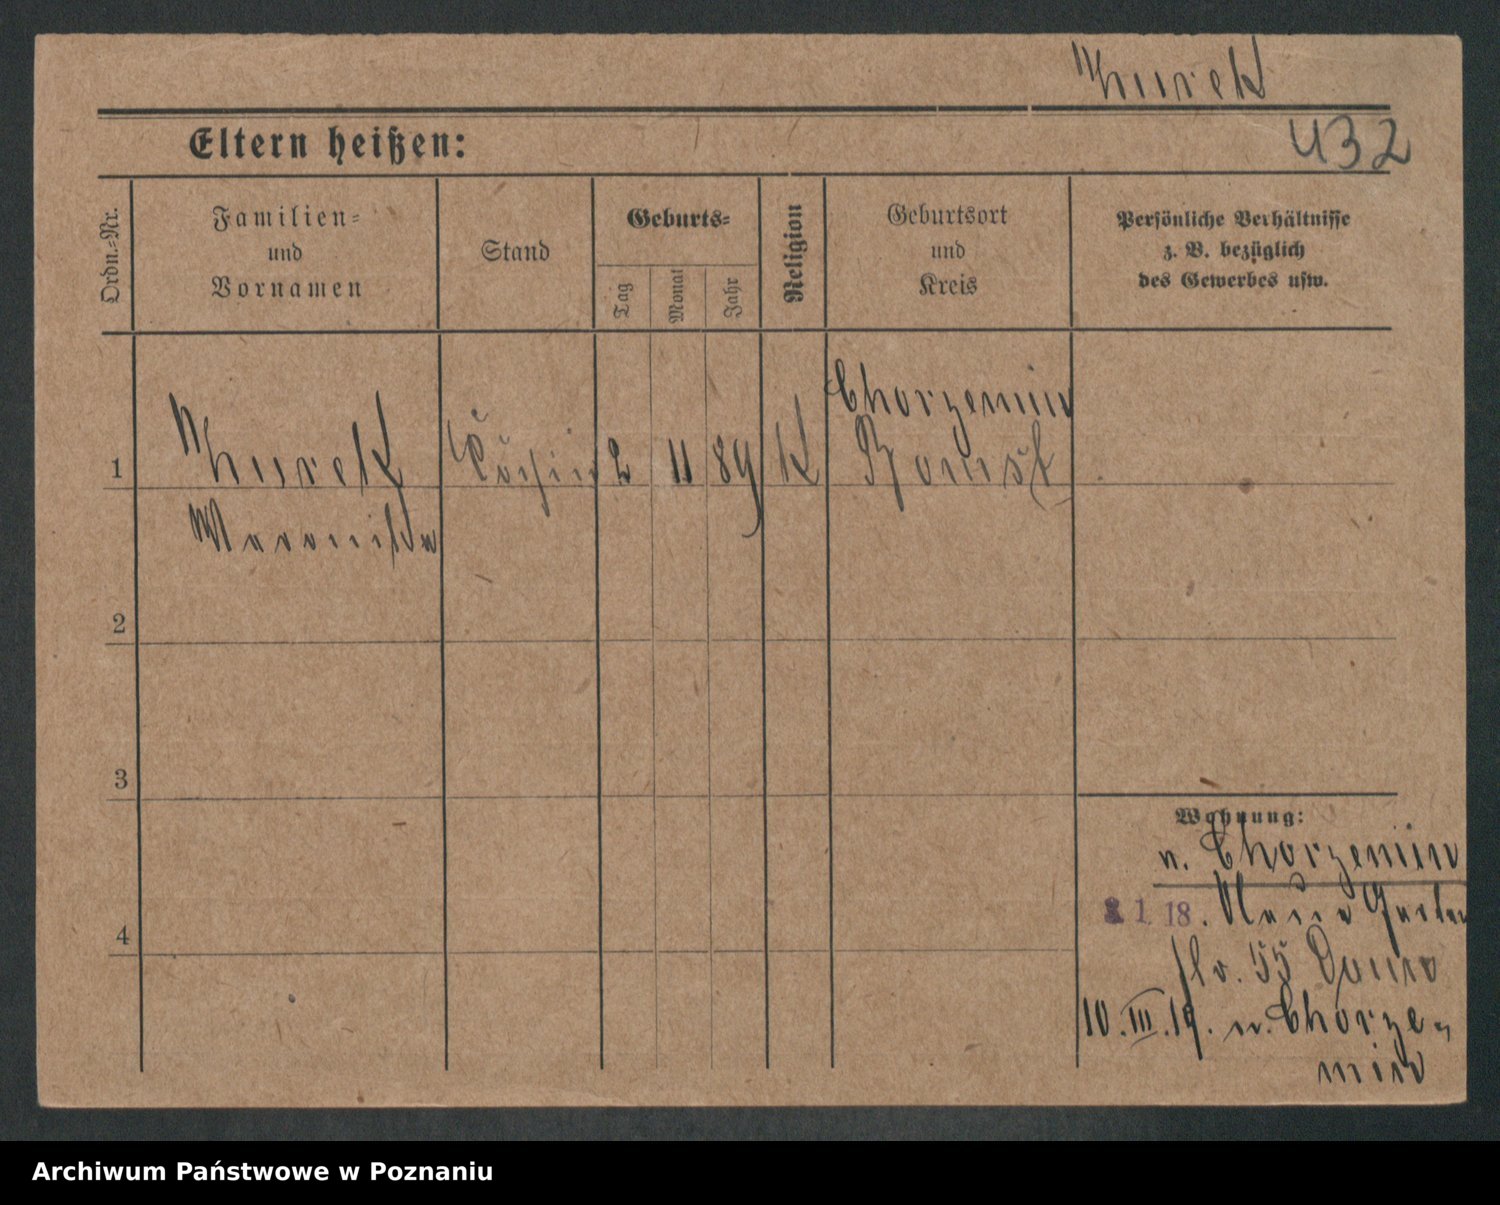 Thurek
Eltern heißen:
432
Ordn.=Nr.
Familien=
und
Vornamen
Stand
Geburts=
Tag
Monat
Jahr
Religion
Geburtsort
und
Kreis
Persönliche Verhältnisse
z. B. bezüglich
des Gewerbes usw.
1
Thurek
Köchin
2
11
89
K
Chorzemin
Bomst
2
3
4
Wohnung:
n. Chorzemin
1. 18. Neue Garten
str. 55
10. III. 19. n. Chorze=
min
Archiwum Państwowe w Poznaniu